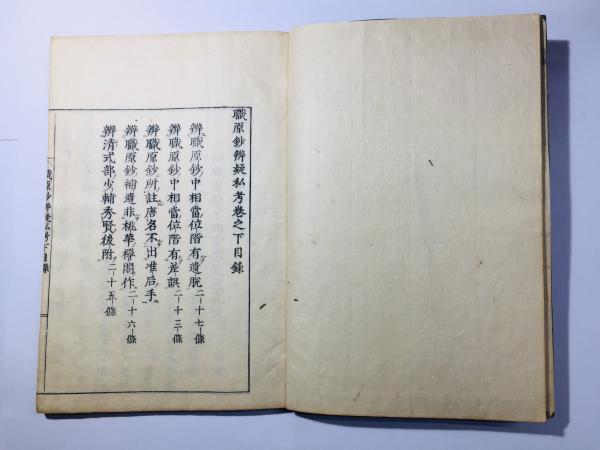 職原鈔辨疑私考卷之下目錄
辨職原鈔中相當位階有遺脫二十七條
辨職原鈔中相當位階有差誤二十三條
辨職原鈔所註唐名不出准后手
辨職原鈔補遺非桃華禪閤作二十六條
辨清式部少輔秀賢後附二十五條
職原鈔辨疑私考下目錄